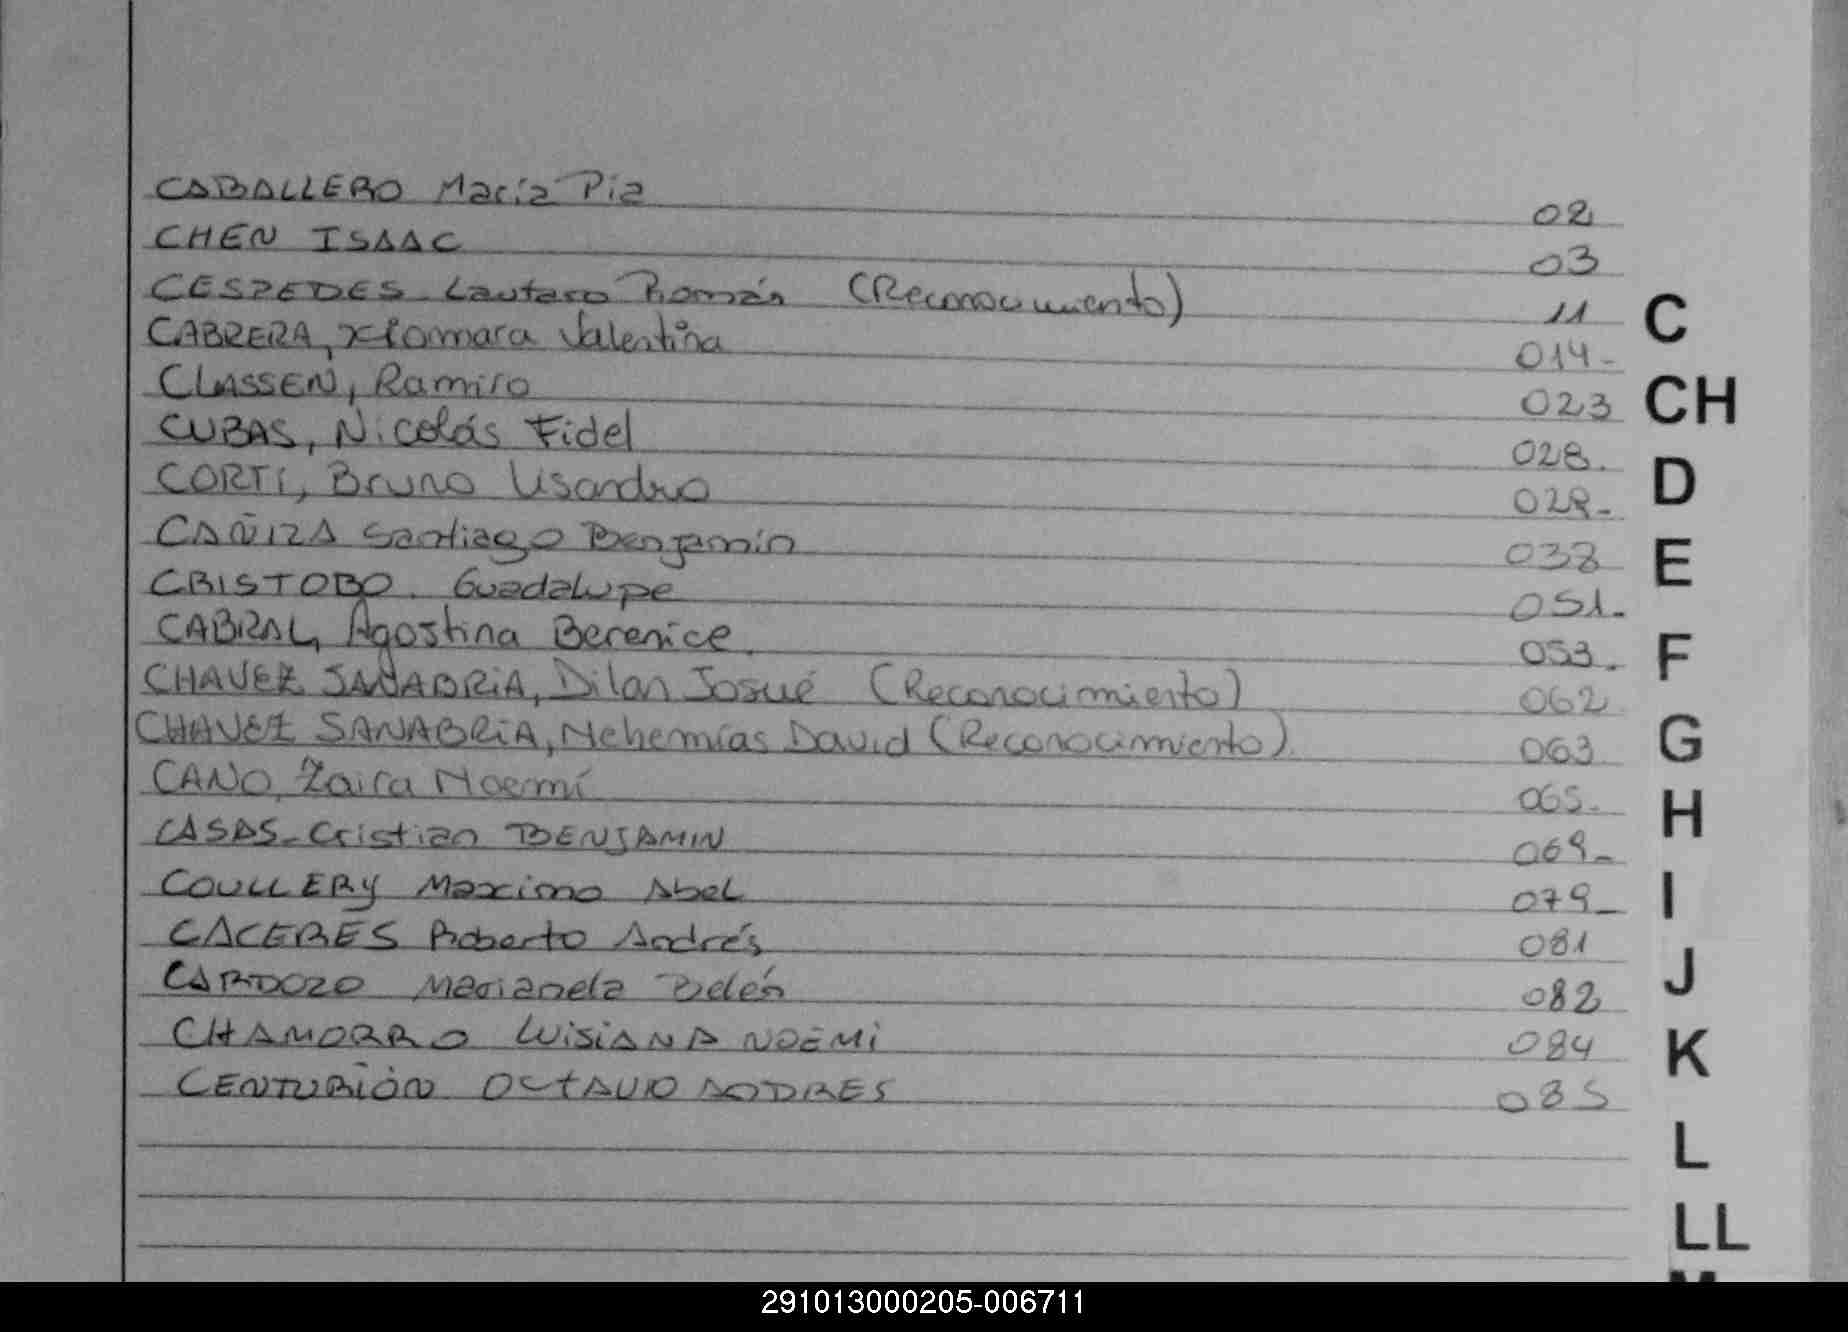 CABALLERO María Pia 02
CHEN ISAAC 03
CESPEDES Lautaro Román (Reconocimiento) 11
CABRERA, Xiomara Valentina 014-
CLASSEN, Ramiro 023
CUBAS, Nicolás Fidel 028.
CORTI, Bruno Lisandro 029-
CAÑIZA Santiago Benjamín 038
CRISTOBO. Guadalupe 051.
CABRAL, Agostina Berenice. 053.
CHAVEZ SANABRIA, Dilan Josué (Reconocimiento) 062
CHAVEZ SANABRIA, Nehemías David (Reconocimiento). 063
CANO, Zaira Noemí 065.
CASAS- Cristian BENJAMIN 069-
COULLERY Maximo Abel 079-
CACERES Roberto Andrés 081
CARDOZO Marianela Belén 082
CHAMORRO LUISIANA NOEMI 084
CENTURIÓN OCTAVIO ANDRES 085
C
CH
D
E
F
G
H
I
J
K
L
LL
M
291013000205-006711